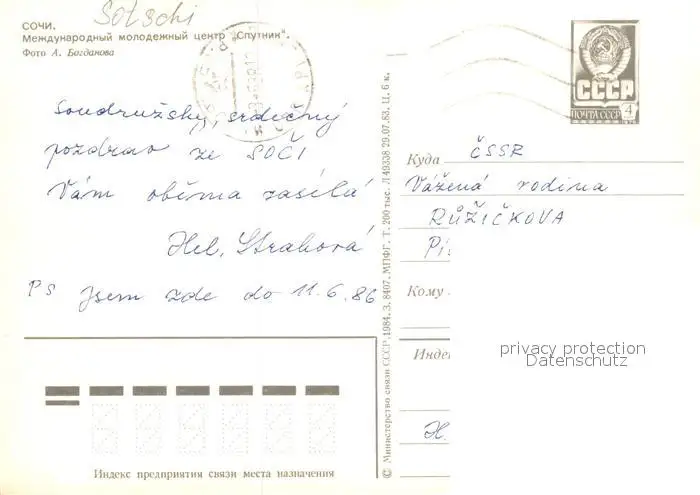 Sotschi
СОЧИ.
Международный молодежный центр „Спутник".
Фото А. Богданова
Soudružský, srdečný
pozdrav ze SOČI
Vám oběma zasílá
Hel. Straková
PS Jsem zde do 11.6.86
© Министерство связи СССР. 1984. З. 8407. МПФГ. Т. 200 тыс. Л 49338 29.07.83. Ц. 6 к.
СССР
ПОЧТА СССР 4
Куда ČSSR
Vážená rodina
RŮŽIČKOVA
Кому
privacy protection
Datenschutz
Индекс предприятия связи места назначения